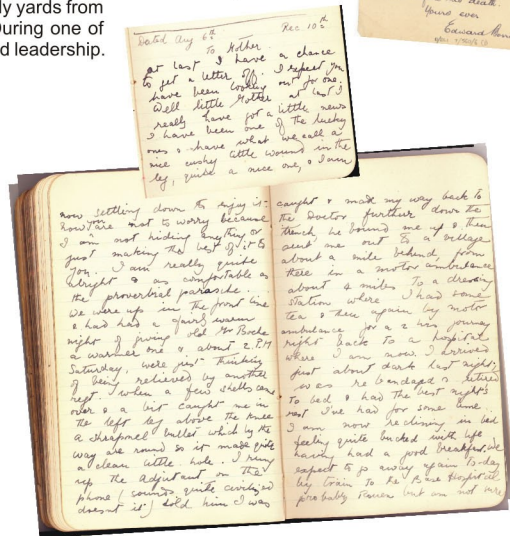 ly yards from
During one of
d leadership.
death.
Yours ever
Edward
Dated Aug 6th Rec. 10th
To Mother.
At last I have a chance
to get a letter off. I expect you
have been looking out for one.
Well little Mother at last I
really have got a little news
I have been one of the lucky
ones & have what we call a
nice cushy little wound in the
leg, quite a nice one, & I am
now settling down to enjoy it.
now you are not to worry because
I am not hiding anything or
just making the best of it to
you. I am really quite
alright & as comfortable as
the proverbial
We were up in the front line
& had had a fairly warm
night of giving old Mr Boche
a warmer one & about 2. P.M
Saturday, were just thinking
of being relieved by another
regt. when a few shells came
over & a bit caught me in
the left leg above the knee
a shrapnel bullet which by the
way are round so it made quite
a clean little hole. I rung
up the adjutant on the
phone (sounds quite civilized
doesnt it) told him I was
caught & made my way back to
the Doctor further down the
trench he bound me up & then
sent me out to a village
about a mile behind, from
there in a motor ambulance
about 4 miles to a dressing
station where I had some
tea & then again by motor
ambulance for a 2 hrs journey
right back to a hospital
where I am now. I arrived
just about dark last night,
was rebandaged & retired
to bed & had the best night's
rest I've had for some time.
I am now reclining in bed
feeling quite bucked with life
having had a good breakfast, we
expect to go away again to-day
by train to the Base Hospital
probably Rouen but am not sure